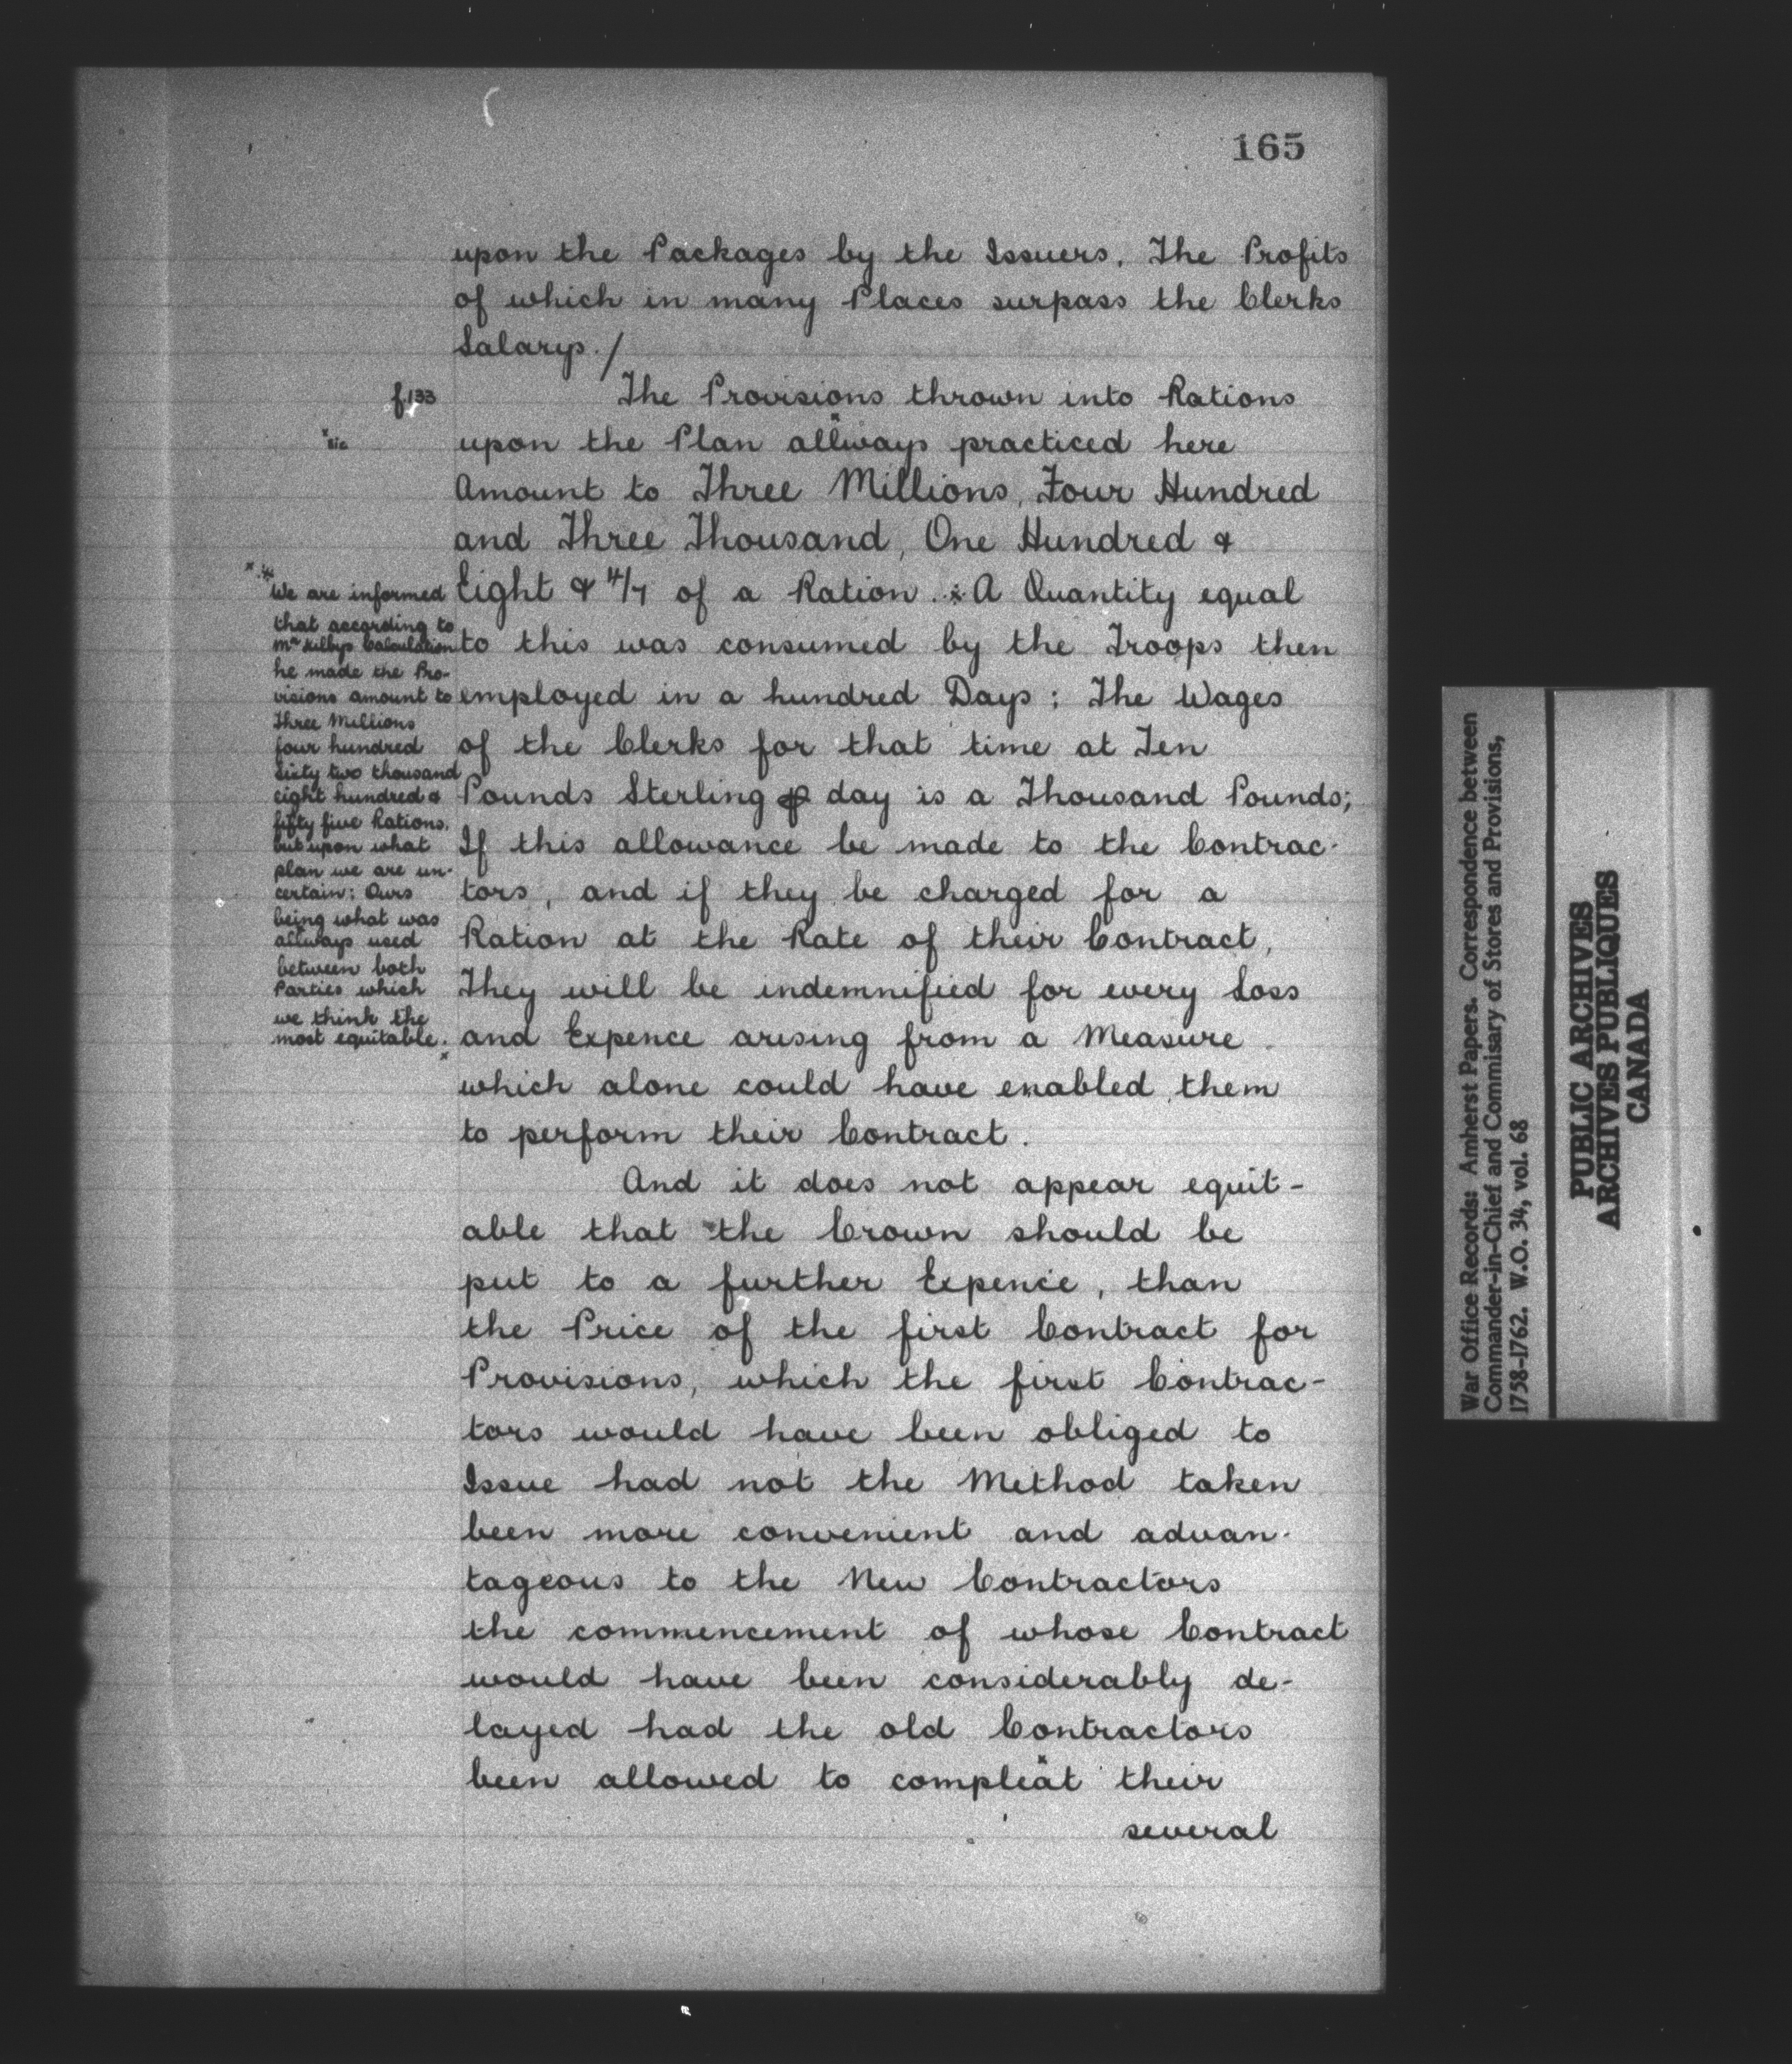 165
upon the Packages by the Issuers. The Profits
of which in many Places surpass the Clerks
Salarys./
f.133
The Provisions thrown into Rations
x sic
upon the Plan allways practiced here
Amount to Three Millions, Four Hundred
and Three Thousand, One Hundred &
Eight & 4/7 of a Ration. x A Quantity equal
to this was consumed by the Troops then
employed in a hundred Days; The Wages
of the Clerks for that time at Ten
Pounds Sterling ⅌ day is a Thousand Pounds;
If this allowance be made to the Contrac-
tors, and if they be charged for a
Ration at the Rate of their Contract,
They will be indemnified for every Loss
and Expence arising from a Measure
which alone could have enabled them
to perform their Contract.
And it does not appear equit-
able that the Crown should be
put to a further Expence, than
the Price of the first Contract for
Provisions, which the first Contrac-
tors would have been obliged to
Issue had not the Method taken
been more convenient and advan-
tageous to the New Contractors
the commencement of whose Contract
would have been considerably de-
layed had the old Contractors
been allowed to compleat their
several
x x We are informed
that according to
Mr Kilbys Calculation
he made the Pro-
visions amount to
Three Millions
four hundred
Sixty two thousand
eight hundred &
fifty five Rations.
but upon what
plan we are un-
certain: Ours
being what was
allways used
between both
Parties which
we think the
most equitable. x
War Office Records: Amherst Papers. Correspondence between
Commander-in-Chief and Commisary of Stores and Provisions,
1758-1762. W.O. 34, vol. 68
PUBLIC ARCHIVES
ARCHIVES PUBLIQUES
CANADA